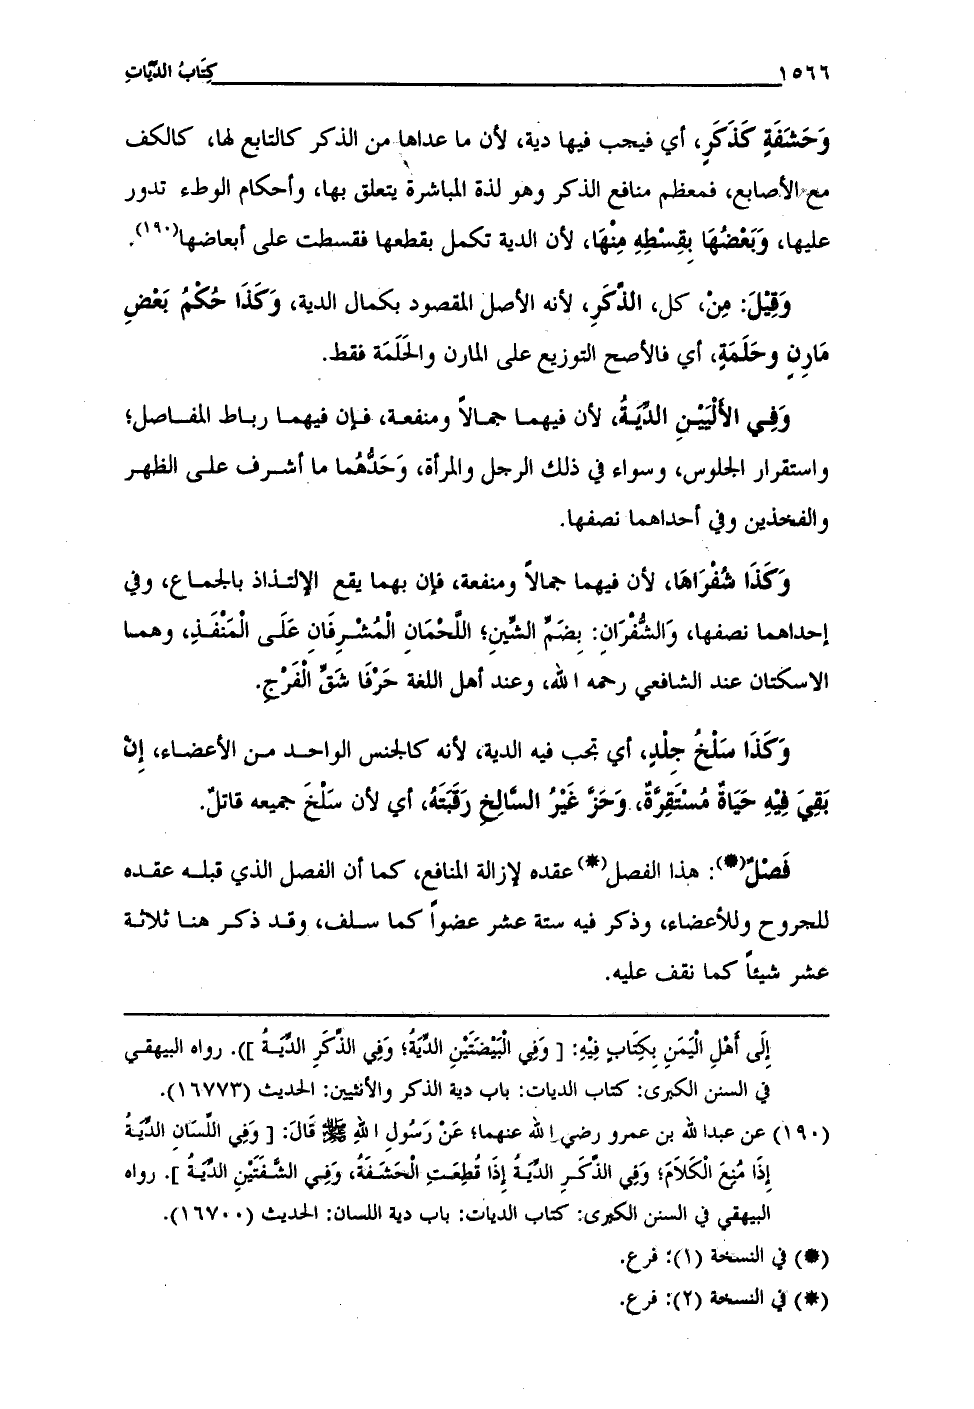 ١٥٦٦ كِتَابُ الدِّيَاتِ
وَحَشَفَةٍ كَذَكَرٍ، أي فيجب فيها دية، لأن ما عداها من الذكر كالتابع لها، كالكف
مع الأصابع، فمعظم منافع الذكر وهو لذة المباشرة يتعلق بها، وأحكام الوطء تدور
عليها، وَبَعْضُهَا بِقِسْطِهِ مِنْهَا، لأن الدية تكمل بقطعها فقسطت على أبعاضها(١٩٠).
وَقِيْلَ: مِنْ، كل، الذَّكَرِ، لأنه الأصل المقصود بكمال الدية، وَكَذَا حُكْمُ بَعْضِ
مَارِنٍ وحَلَمَةٍ، أي فالأصح التوزيع على المارن والحَلَمَة فقط.
وَفِي الأَلْيَيْنِ الدِّيَةُ، لأن فيهما جمالاً ومنفعة، فإن فيهما رباط المفاصل؛
واستقرار الجلوس، وسواء في ذلك الرجل والمرأة، وَحَدُّهُما ما أشرف على الظهر
والفخذين وفي أحداهما نصفها.
وَكَذَا شُفْرَاهَا، لأن فيهما جمالاً ومنفعة، فإن بهما يقع الإلتذاذ بالجماع، وفي
إحداهما نصفها، وَالشُّفْرَانِ: بِضَمِّ الشِّينِ؛ اللَّحْمَانِ الْمُشْرِفَانِ عَلَى الْمَنْفَذِ، وهما
الاسكتان عند الشافعي رحمه الله، وعند أهل اللغة حَرْفَا شَقِّ الْفَرْجِ.
وَكَذَا سَلْخُ جِلْدٍ، أي تجب فيه الدية، لأنه كالجنس الواحد من الأعضاء، إِنْ
بَقِيَ فِيْهِ حَيَاةٌ مُسْتَقِرَّةٌ، وَحَزَّ غَيْرُ السَّالِخِ رَقَبَتَهُ، أي لأن سَلْخَ جميعه قاتلٌ.
فَصْلٌ(*): هذا الفصل(*) عقده لإزالة المنافع، كما أن الفصل الذي قبله عقده
للجروح وللأعضاء، وذكر فيه ستة عشر عضواً كما سلف، وقد ذكر هنا ثلاثة
عشر شيئاً كما نقف عليه.
إِلَى أَهْلِ الْيَمَنِ بِكِتَابٍ فِيْهِ: [ وَفِي الْبَيْضَتَيْنِ الدِّيَةُ؛ وَفِي الذَّكَرِ الدِّيَةُ ]). رواه البيهقي
في السنن الكبرى: كتاب الديات: باب دية الذكر والأنثيين: الحديث (١٦٧٧٣).
(١٩٠) عن عبدالله بن عمرو رضي الله عنهما؛ عَنْ رَسُولِ اللهِ ﷺ قَالَ: [ وَفِي اللِّسَانِ الدِّيَةُ
إِذَا مُنِعَ الْكَلاَمَ؛ وَفِي الذَّكَرِ الدِّيَةُ إِذَا قُطِعَتِ الْحَشَفَةُ، وَفِي الشَّفَتَيْنِ الدِّيَةُ ]. رواه
البيهقي في السنن الكبرى: كتاب الديات: باب دية اللسان: الحديث (١٦٧٠٠).
(*) في النسخة (١): فرع.
(*) في النسخة (٢): فرع.